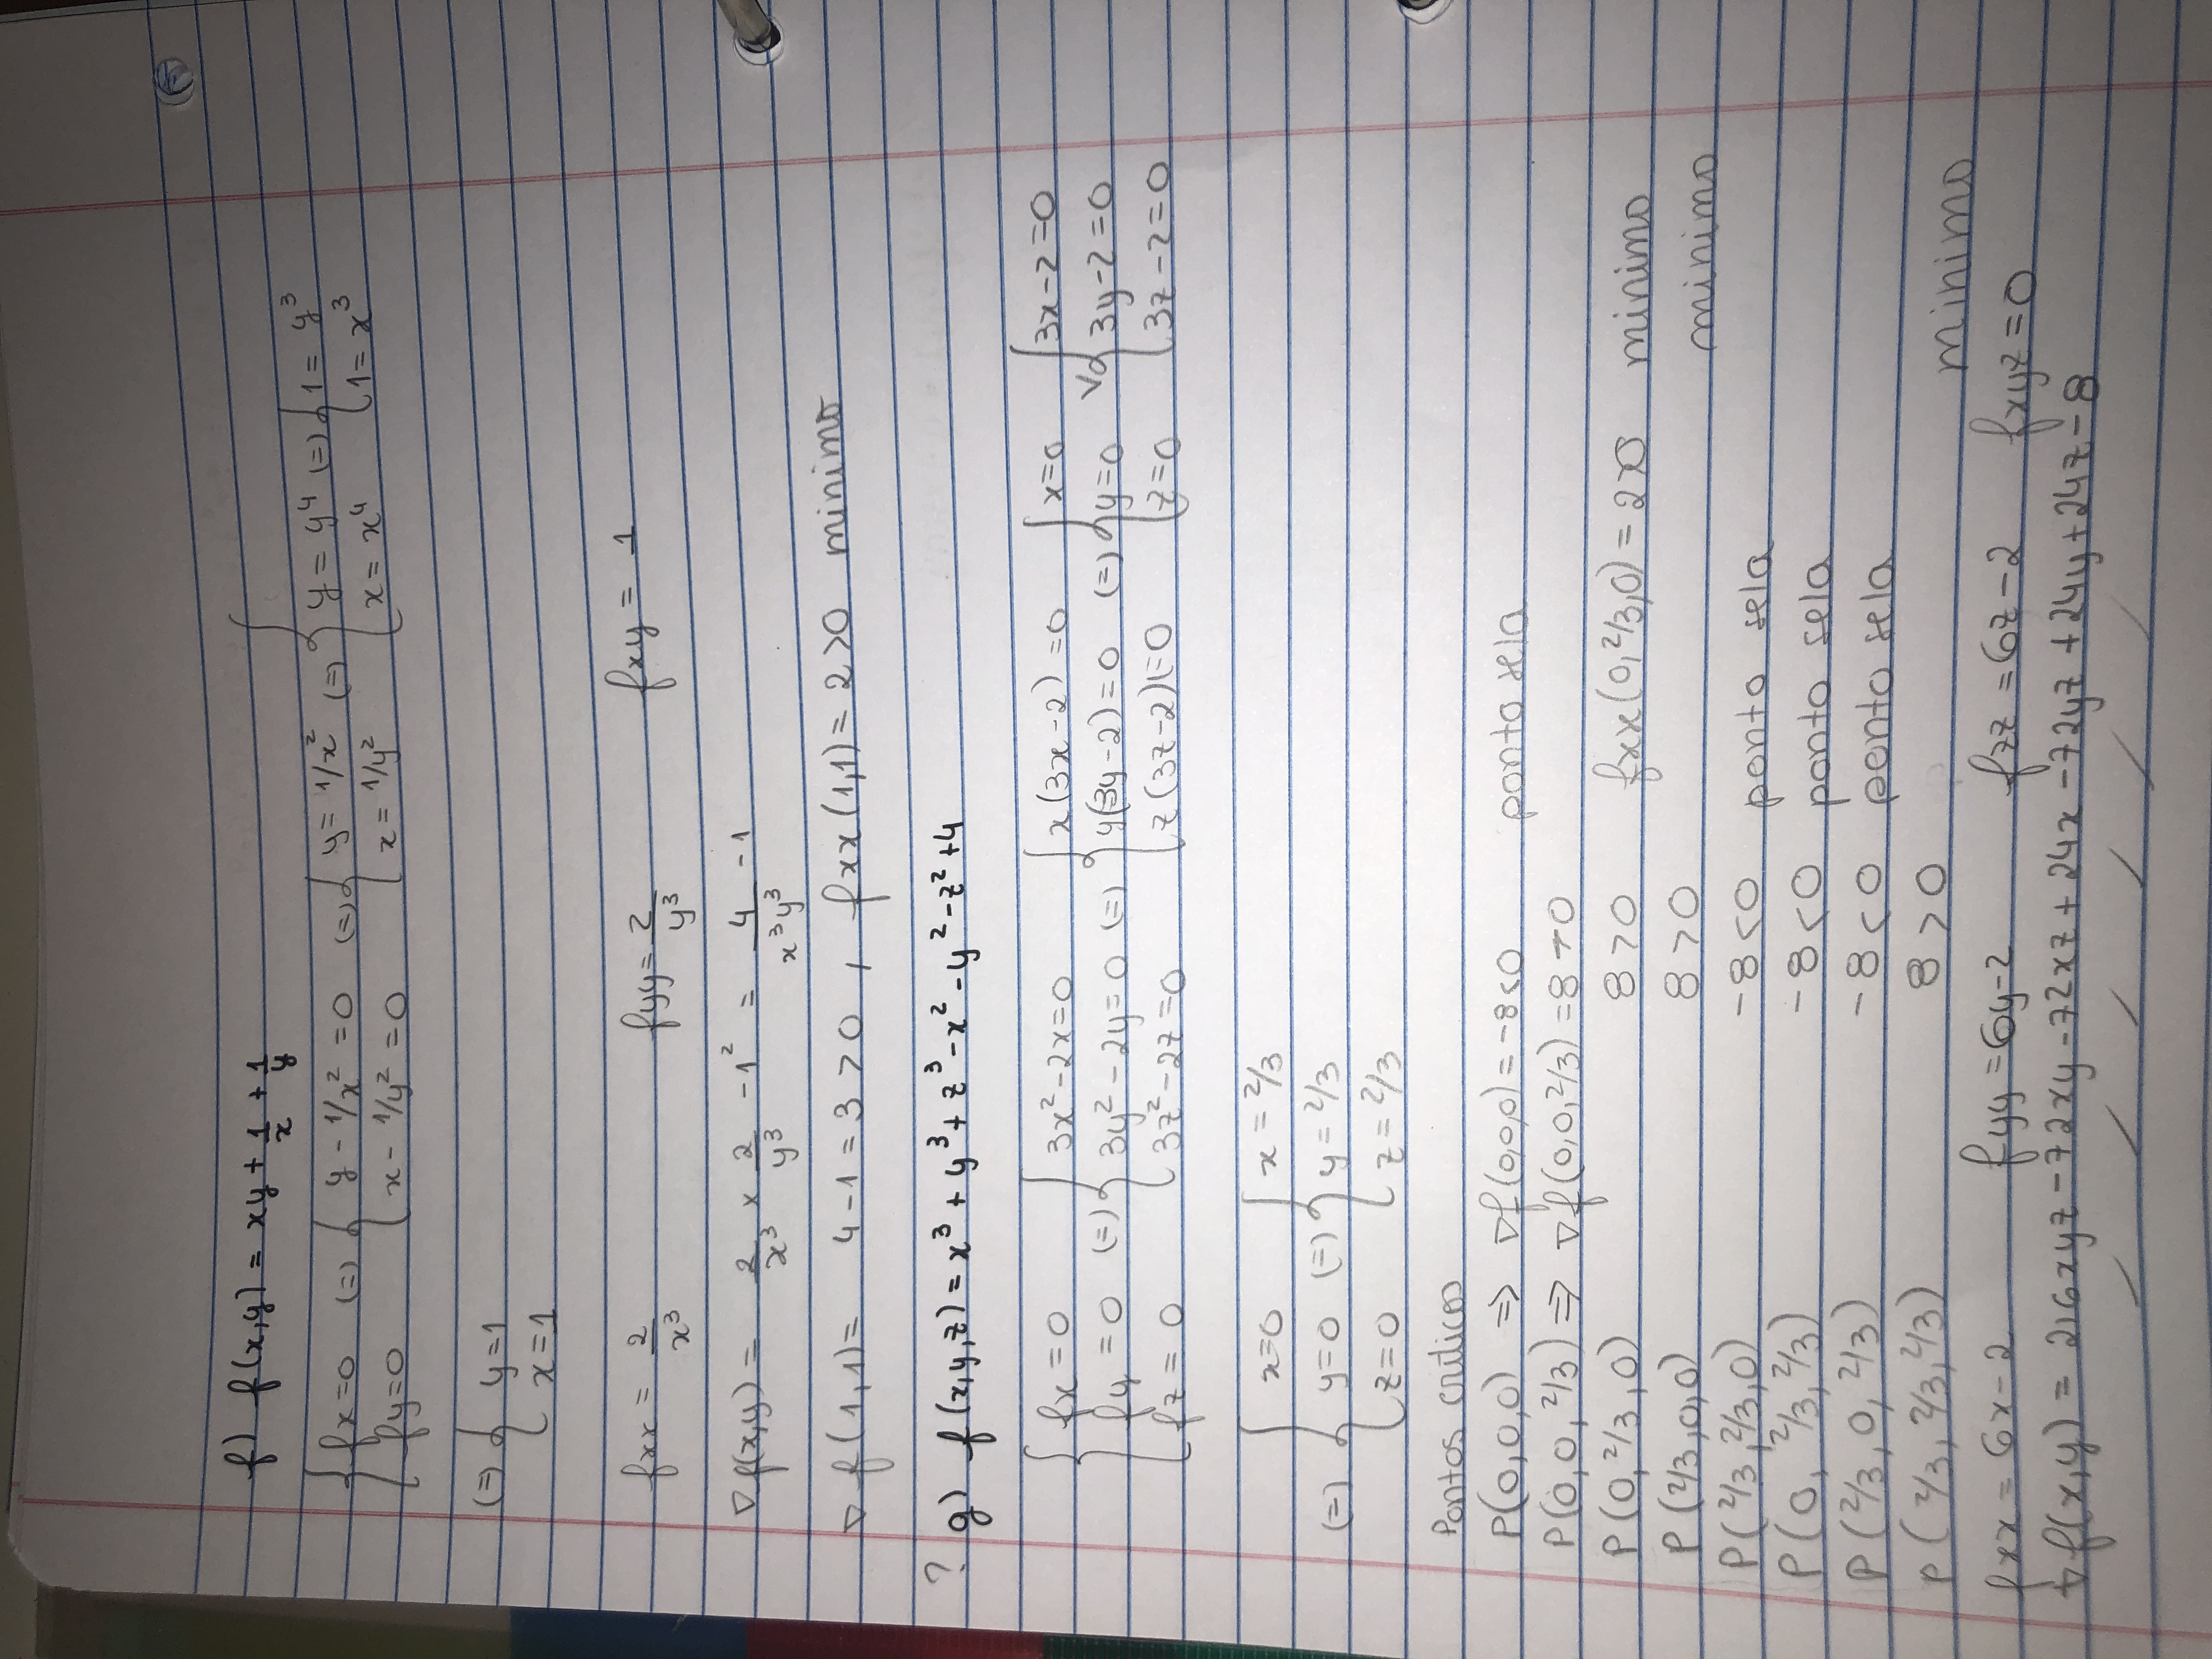 f) f(x,y) = xy + 1/x + 1/y
{ fx=0 (=) { y - 1/x² = 0 (=) { y = 1/x² (=) { y = y⁴ (=) { 1 = y³
fy=0 x - 1/y² = 0 x = 1/y² x = x⁴ 1 = x³
(=) { y=1
x=1
fxx = 2/x³ fyy = 2/y³ fxy = 1
∇f(x,y) = 2/x³ × 2/y³ - 1² = 4/x³y³ - 1
∇f(1,1) = 4-1 = 3 > 0 , fxx(1,1) = 2>0 minimo
? g) f(x,y,z) = x³ + y³ + z³ - x² - y² - z² + 4
{ fx = 0 { 3x² - 2x = 0 { x(3x-2) = 0 { x=0 { 3x-2=0
fy = 0 (=) 3y² - 2y = 0 (=) y(3y-2) = 0 (=) y=0 V 3y-2=0
fz = 0 3z² - 2z = 0 z(3z-2) = 0 z=0 3z-2=0
{ x=0 { x = 2/3
(=) y=0 (=) y = 2/3
z=0 z = 2/3
Pontos criticos
P(0,0,0) => ∇f(0,0,0) = -8<0 ponto sela
P(0,0,2/3) => ∇f(0,0,2/3) = 8>0
P(0,2/3,0) 8>0 fxx(0,2/3,0) = 2>0 minimo
P(2/3,0,0) 8>0 minimo
P(2/3,2/3,0) -8<0 ponto sela
P(0,2/3,2/3) -8<0 ponto sela
P(2/3,0,2/3) -8<0 ponto sela
P(2/3,2/3,2/3) 8>0 minimo
fxx = 6x-2 fyy = 6y-2 fzz = 6z-2 fxyz = 0
∇f(x,y) = 216xyz - 72xy - 72xz + 24x - 72yz + 24y + 24z - 8